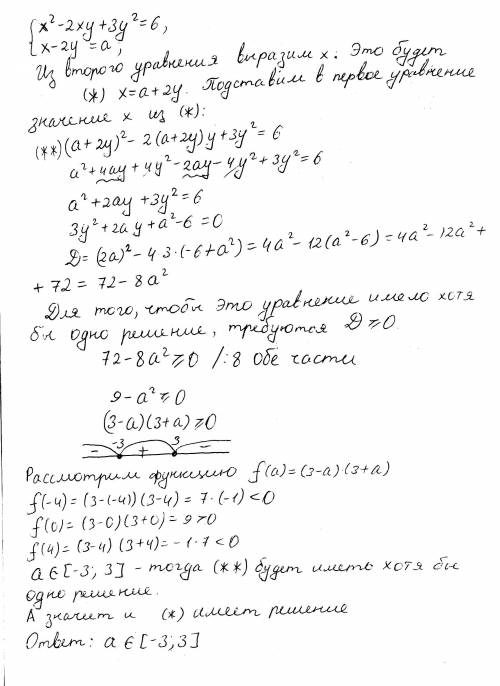 {x²-2xy+3y²=6,
{x-2y=a,
Из второго уравнения выразим x. Это будет
(*) x=a+2y. Подставим в первое уравнение
значение x из (*):
(**)(a+2y)²-2(a+2y)y+3y²=6
a²+4ay+4y²-2ay-4y²+3y²=6
a²+2ay+3y²=6
3y²+2ay+a²-6=0
D=(2a)²-4·3·(-6+a²)=4a²-12(a²-6)=4a²-12a²+
+72=72-8a²
Для того, чтобы это уравнение имело хотя
бы одно решение, требуются D≥0.
72-8a²≥0 /:8 обе части
9-a²≥0
(3-a)(3+a)≥0
- -3 + 3 -
Рассмотрим функцию f(a)=(3-a)(3+a)
f(-4)=(3-(-4))(3-4)=7·(-1)<0
f(0)=(3-0)(3+0)=9>0
f(4)=(3-4)(3+4)=-1·7<0
a∈[-3;3] - тогда (**) будет иметь хотя бы
одно решение.
А значит и (*) имеет решение
Ответ: a∈[-3;3]